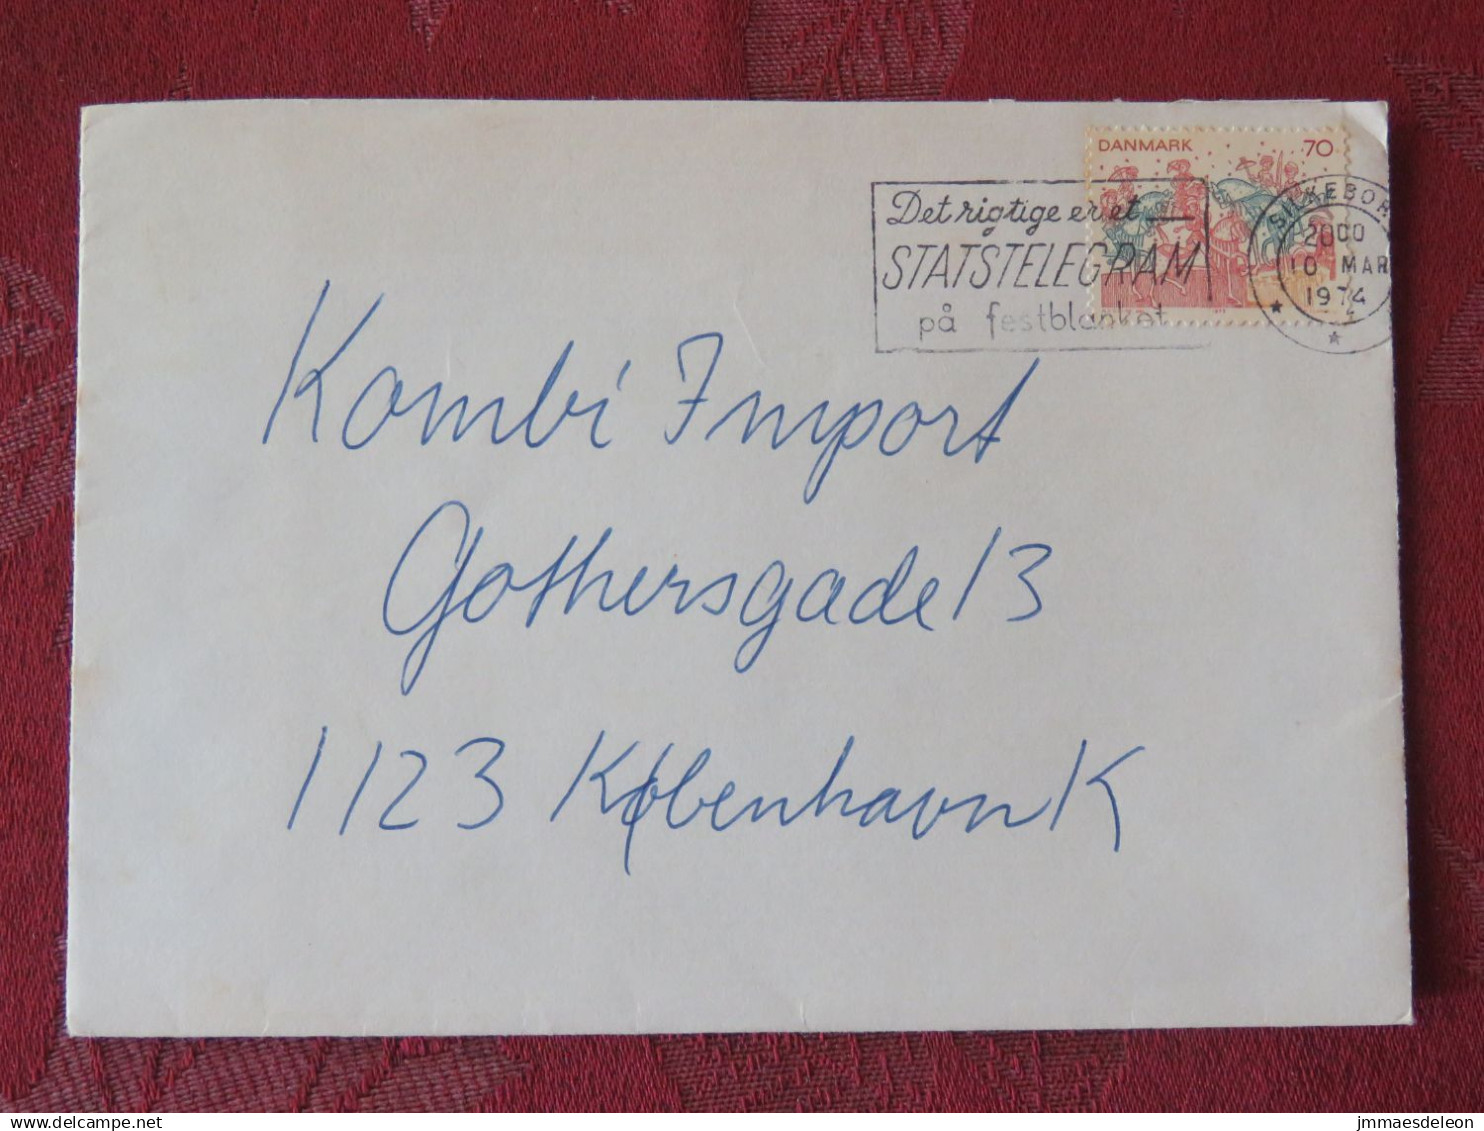 DANMARK 70
Det rigtige er et
STATSTELEGRAM
på festblanket
SILKEBOR
2000
10 MAR
1974
Kombi Import
Gothersgade 13
1123 København K
www.delcampe.net
jmmaesdeleon